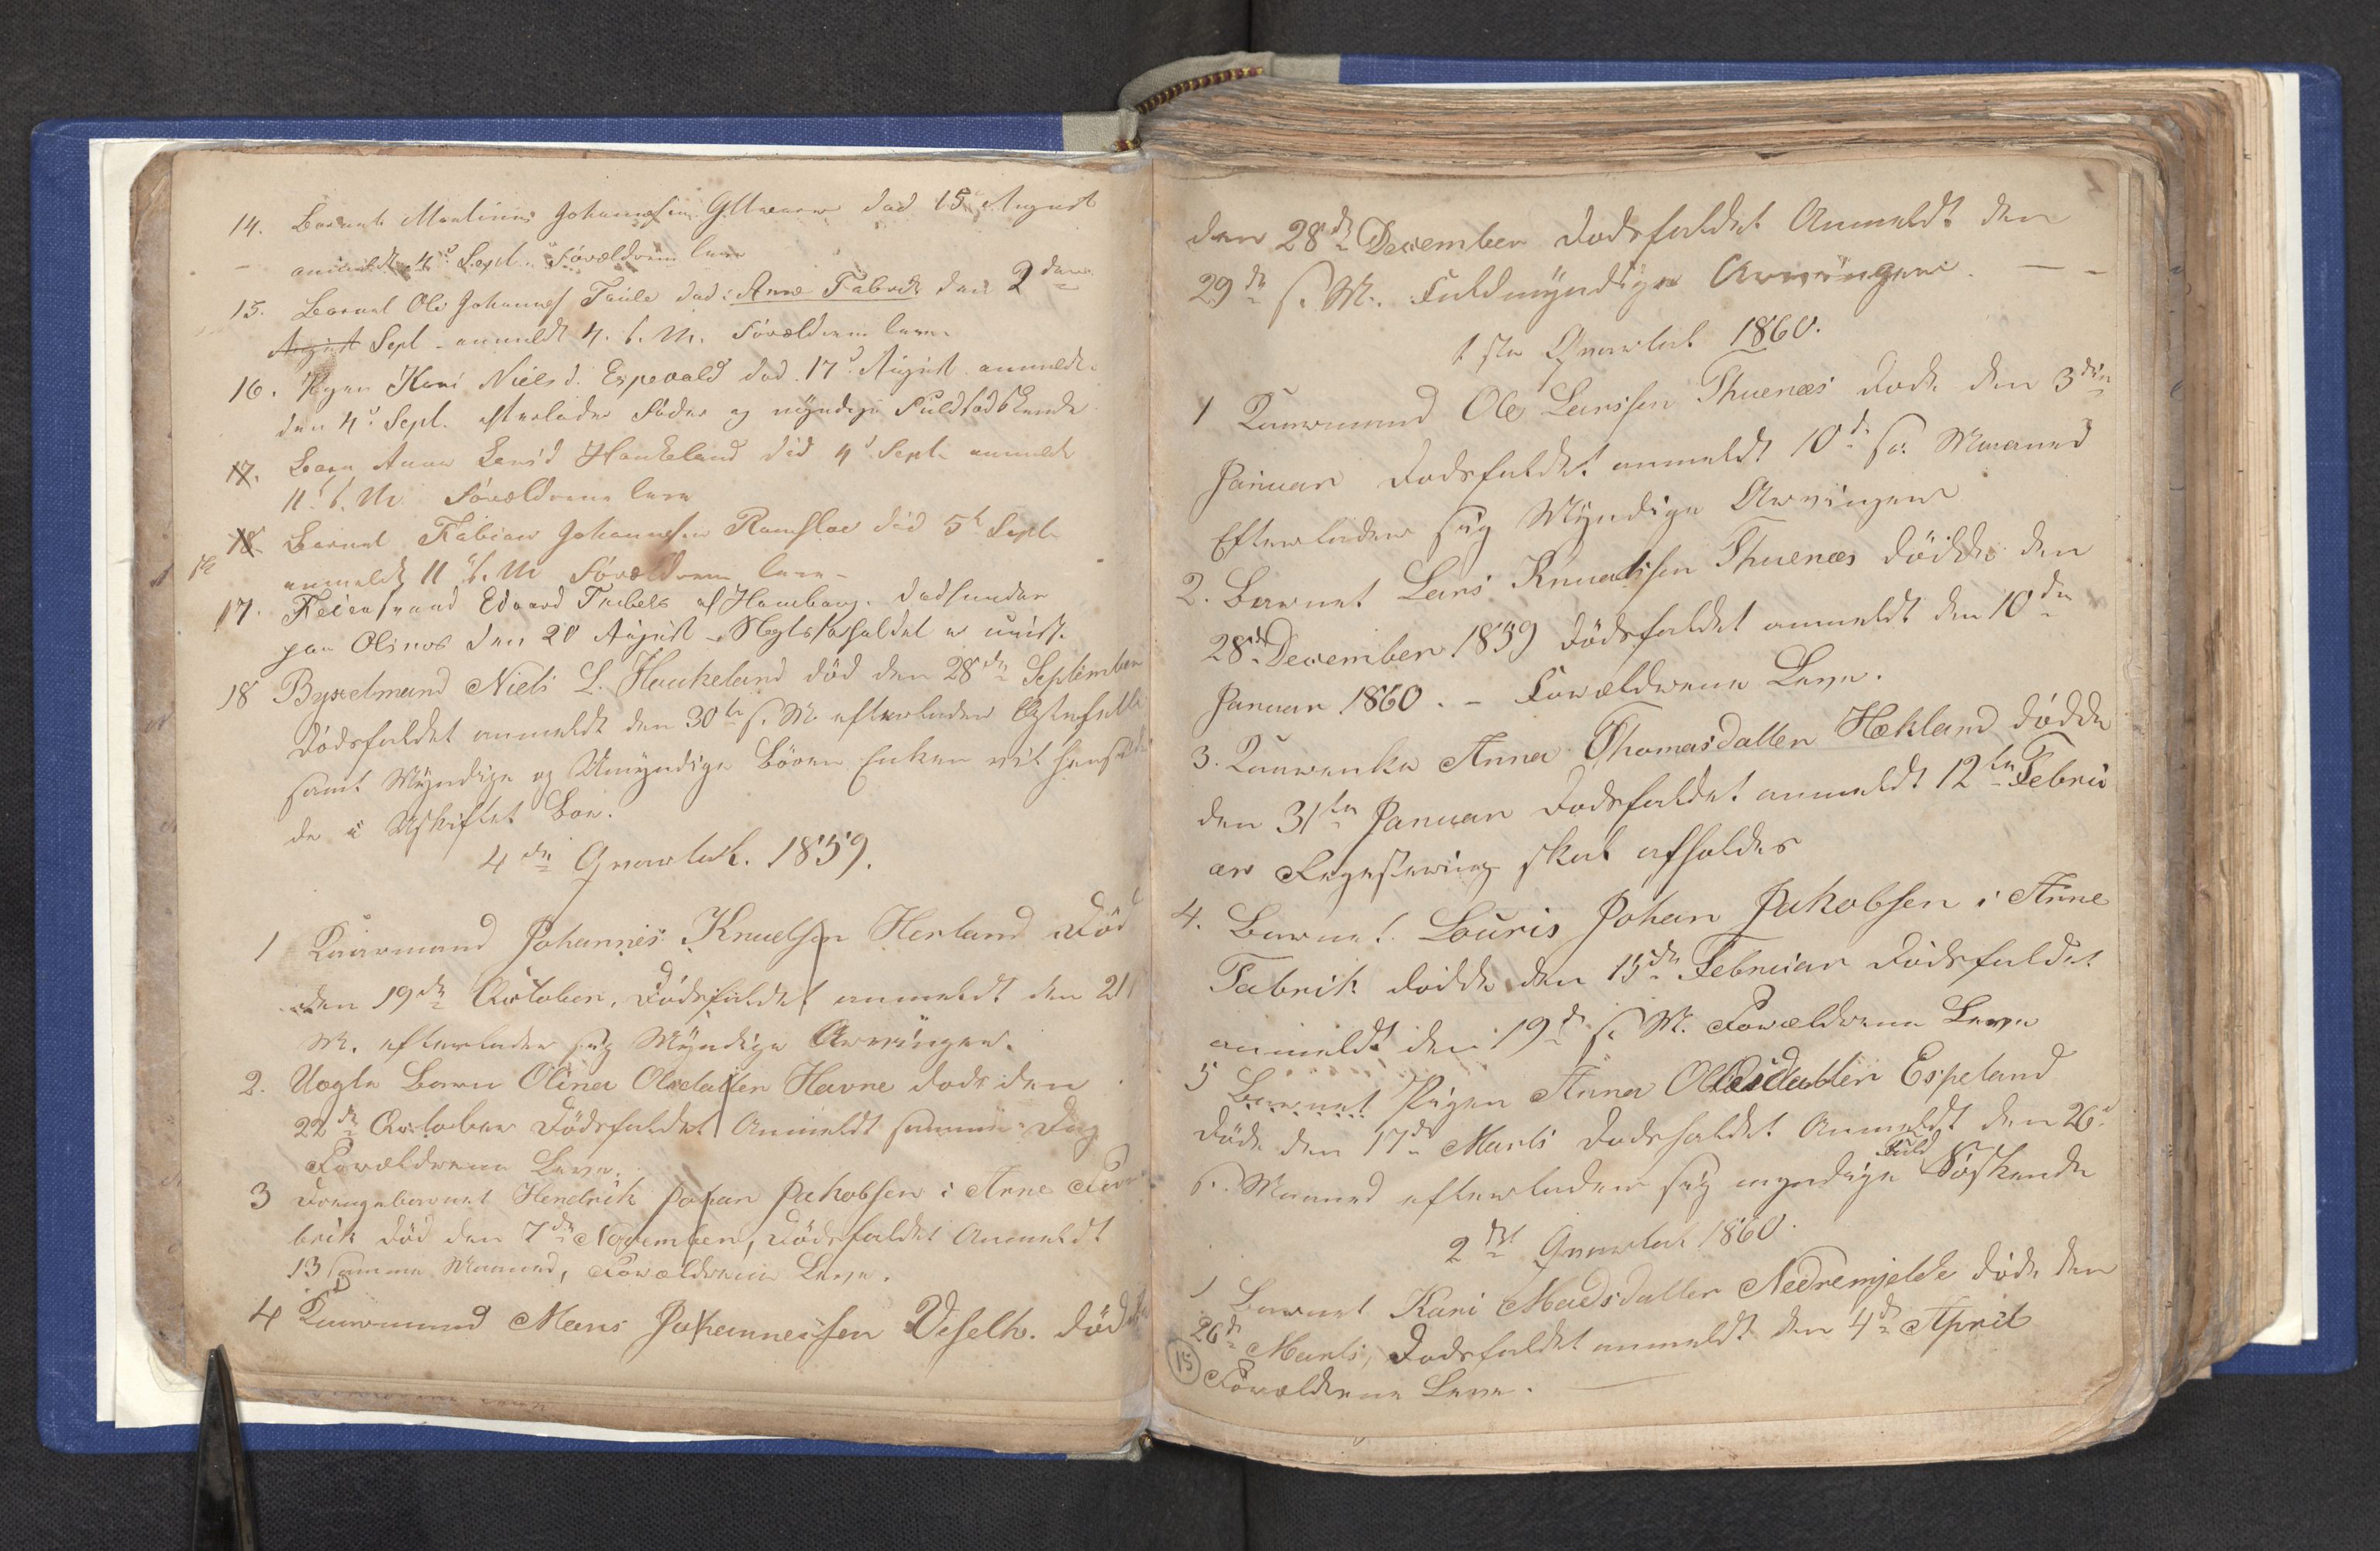 14. Barnet Martinus Johannesen død 15 August
anmeldt 4d Sept. Forældrene leve
15. Barnet Ole Johannes Taule død i Arne Fabrik den 2den
August Sept anmeldt 4. s. M. Forældrene leve
16. Pigen Kari Nielsd. Espevold død 17d August anmeldt
den 4d Sept. efterlader Fader og myndige Fuldsødskende
17. Barn Anna Larsd Haukeland død 4d Sept anmeldt
11d s. M. Forældrene leve
18 Barnet Fabian Johannesen Ramslav død 5t Sept
anmeldt 11d s. M Forældrene leve
17. Reisende Edvard af Hamborg. død
paa Olsnes den 20 August
18 Byxelmand Niels L. Haukeland død den 28de September
Dødsfaldet anmeldt den 30te s. M. efterlader Ægtefelle
samt Myndige og Umyndige Børn Enken
de i Uskiftet Boe.
4de Qvartal. 1859.
1 Kaarmand Johannes Knudsen Herland Død
den 19de October, Dødsfaldet anmeldt den 21
M. efterlader sig Myndige Arvinger.
2. Uægte Barn Olina Olsdatter Havne døde den
22de October Dødsfaldet Anmeldt samme Dag
Forældrene Leve.
3 Drengebarnet Hendrik Johan Jakobsen i Arne Fa
brik død den 7de November, Dødsfaldet Anmeldt
13 samme Maaned, Forældrene Leve.
4 Kaarmand Mons Johannessen Veseth. død
den 28de December Dødsfaldet Anmeldt den
29de s. M. Fuldmyndige Arvinger. — —
1ste Qvartal 1860.
1 Kaarmand Ole Larssen Thuenæs døde den 3die
Januar Dødsfaldet anmeldt 10de s. Maaned
Efterlader sig Myndige Arvinger
2. Barnet Lars Knudssen Thuenæs dødde den
28de December 1859 Dødsfaldet anmeldt den 10de
Januar 1860. – Forældrene Leve.
3. Kaarenke Anna Thomasdatter Hækland dødde
den 31te Januar Dødsfaldet anmeldt 12te Febru
ar Registering skal afholdes
4. Barnet Louris Johan Jakobsen i Arne
Fabrik dødde den 15de Februar Dødsfaldet
anmeldt den 19de s. M. Forældrene Leve
5 Barnet Pigen Anna Olesdatter Espeland
Døde den 17de Marts Dødsfaldet Anmeldt den 26d
s. Maaned efterlader sig myndige Fuld Søskende
2det Qvartal 1860.
1 Barnet Kari Madsdatter Nedremjelde døde den
26de Marts, Dødsfaldet anmeldt den 4de April
15 Forældrene Leve. —